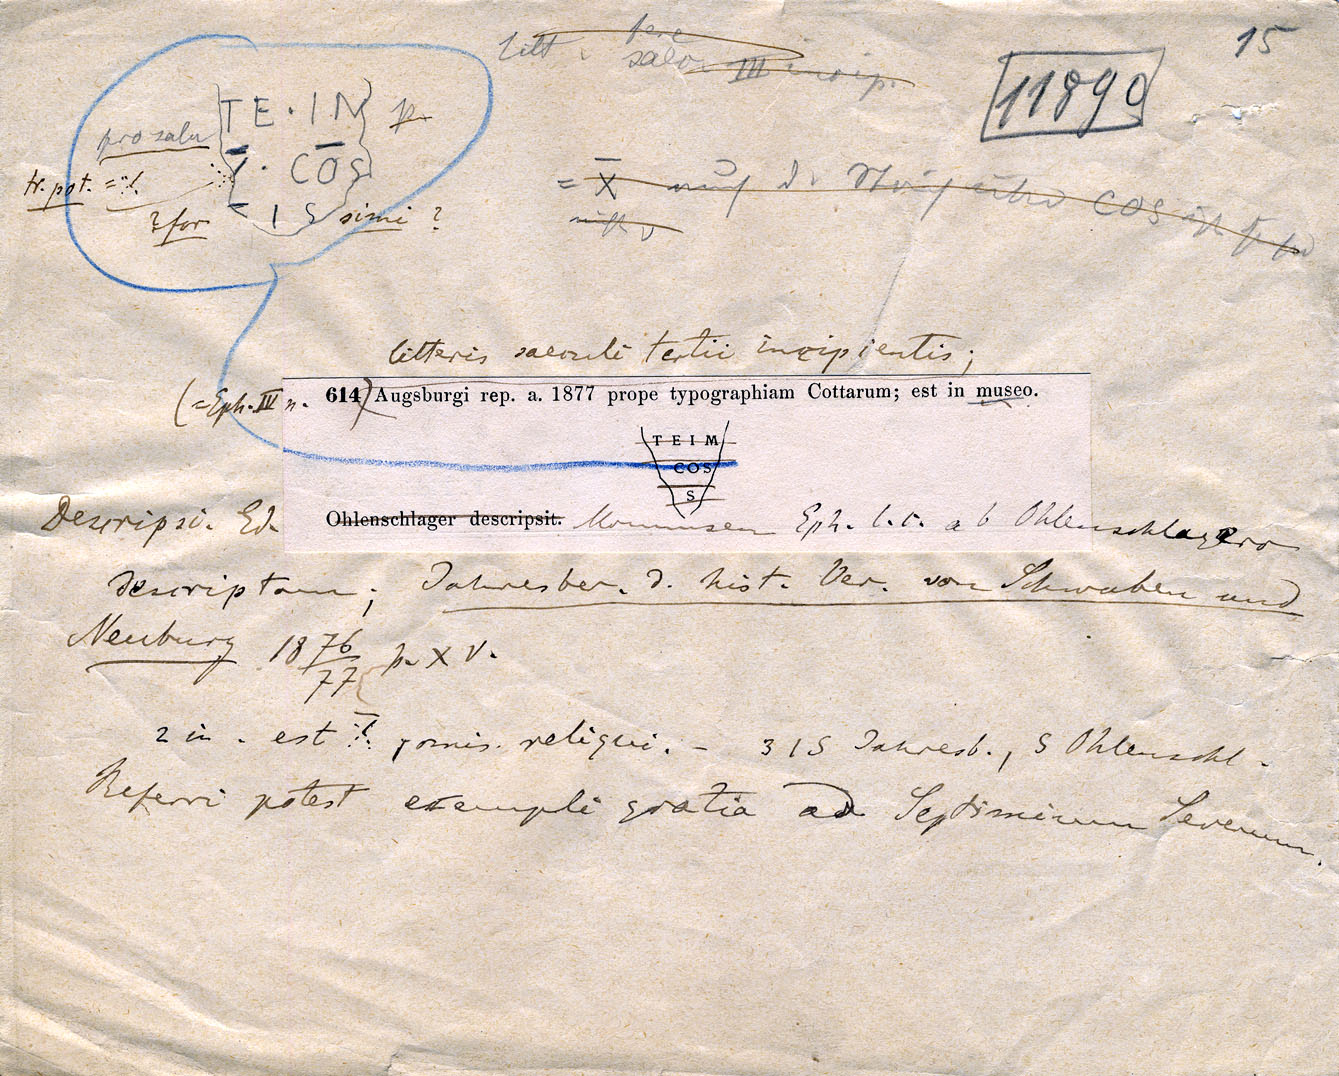 15
11890
fere
saec. III incip.
TE · IN p.
pro salu
· COS
tr. pot. =
? for I S simi ?
= X auf d. COS ist
litteris saeculi tertii incipientis;
(=Eph. IV n. 614) Augsburgi rep. a. 1877 prope typographiam Cottarum; est in museo.
TEIM
COS
S
Ohlenschlager descripsit.
Descripsi. Ed. Mommsen Eph. l. c. ab Ohlenschlagero
descriptam; Jahresber. d. hist. Ver. von Schwaben und
Neuburg 1876/77 p. XV.
2 in. est reliqui. — 3 IS Jahresb., S Ohlenschl.
Referri potest exempli gratia ad Septimium Severum.